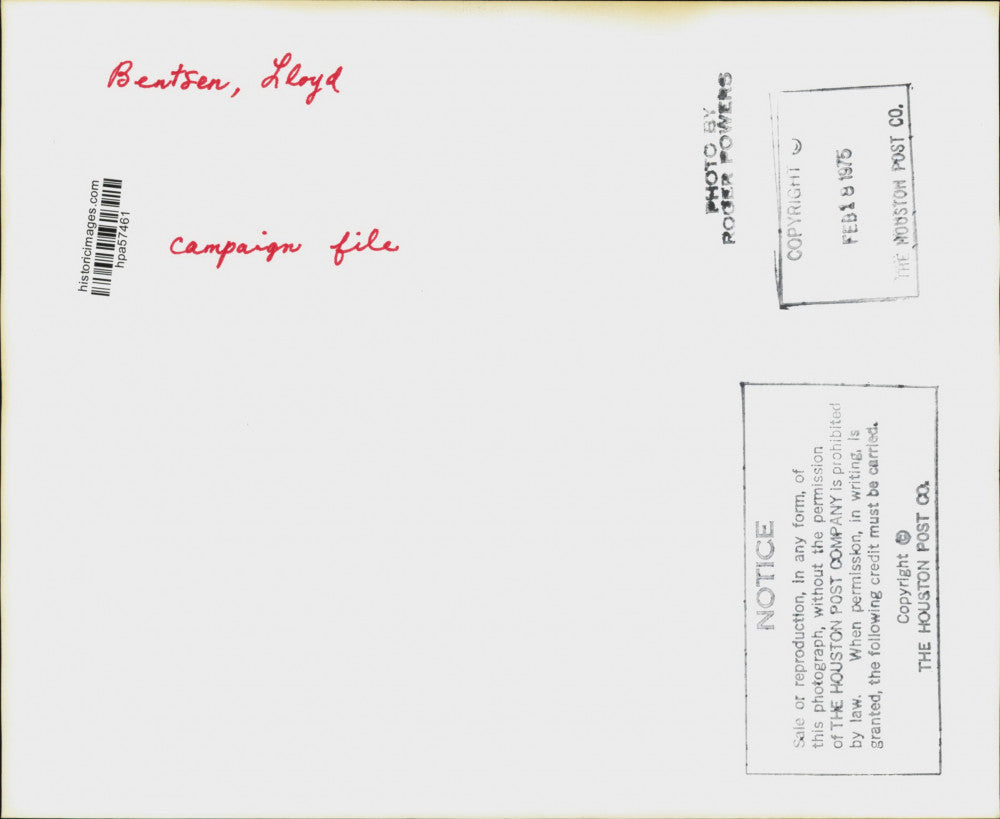 Bentsen, Lloyd
campaign file
historicimages.com
hpa57461
PHOTO BY
ROGER POWERS
COPYRIGHT ©
FEB 18 1975
THE HOUSTON POST CO.
NOTICE
Sale or reproduction, in any form, of
this photograph, without the permission
of THE HOUSTON POST COMPANY is prohibited
by law. When permission, in writing, is
granted, the following credit must be carried.
Copyright ©
THE HOUSTON POST CO.